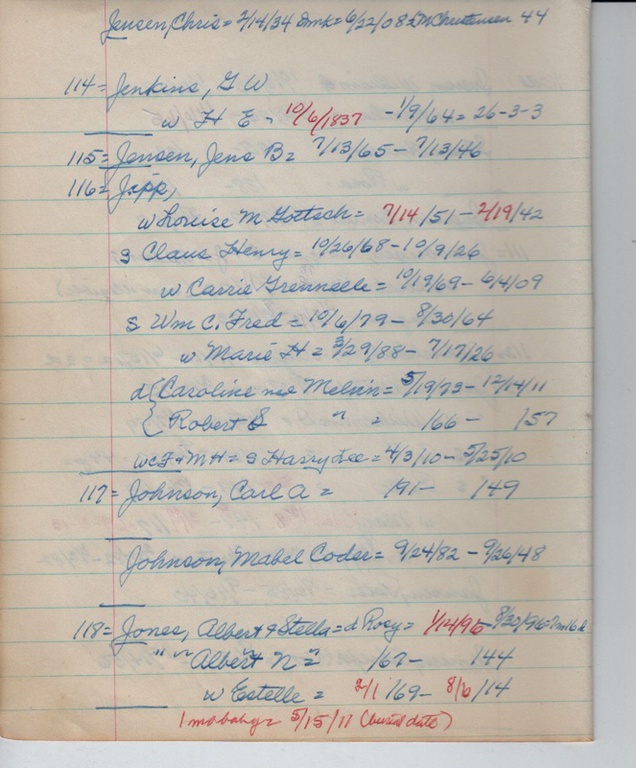 Jensen, Chris = 2/14/34 Dmk = 6/22/08 Christensen 44
114 = Jenkins, G W
w H E - 10/6/1837 - 1/9/64 = 26-3-3
115 = Jensen, Jens B = 7/13/65 - 7/13/46
116 = Jipp,
w Louise M Gottsch = 7/14/51 - 2/19/42
s Claus Henry = 10/26/68 - 10/9/26
w Carrie Grennelle = 10/19/69 - 6/4/09
S Wm C. Fred = 10/6/79 - 8/30/64
w Marie H = 3/29/88 - 7/17/26
d { Caroline nee Melvin = 5/19/73 - 12/14/11
{ Robert S " = /66 - /57
WCF & MH = s Harry Lee = 4/3/10 - 5/25/10
117 = Johnson, Carl A = /91 - /49
Johnson, Mabel Coder = 9/24/82 - 9/26/48
118 = Jones, Albert & Stella = d Rosy = 1/14/96 - 8/30/96
" " Albert N = /67 - /44
w Estelle = 2/1/69 - 8/6/14
1 mo baby = 5/15/11 (burial date)